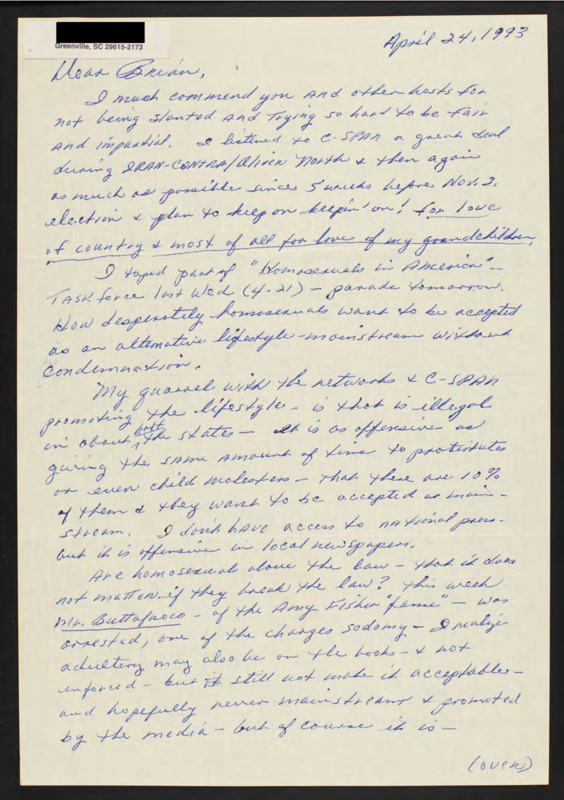 Greenville, SC 29615-2173
April 24, 1993
Dear Brian,
I much commend you and other hosts for
not being slanted and trying so hard to be fair
and impartial. I listened to C-SPAN a great deal
during IRAN-CONTRA/Oliver North & then again
as much as possible since 5 weeks before Nov. 3,
election & plan to keep on keepin' on! for love
of country & most of all for love of my grandchildren.
I taped part of "Homosexuals in America"-
Task force last Wed (4-21) - parade tomorrow.
How desperately homosexuals want to be accepted
as an alternative lifestyle - mainstream without
condemnation.
My quarrel with the networks & C-SPAN
promoting the lifestyle - is that is illegal
in about half the states - It is as offensive as
giving the same amount of time to prostitutes
or even child molesters - that there are 10%
of them & they want to be accepted as main-
stream. I don't have access to national press-
but it is offensive in local newspapers.
Are homosexual above the law - that it does
not matter if they break the law? This week
Mr. Buttafuoco - of the Amy Fisher "fame" - was
arrested, one of the charges sodomy - I realize
adultery may also be on the books - & not
enforced - but it still not make it acceptable -
and hopefully never mainstream & promoted
by the media - but of course it is -
(over)